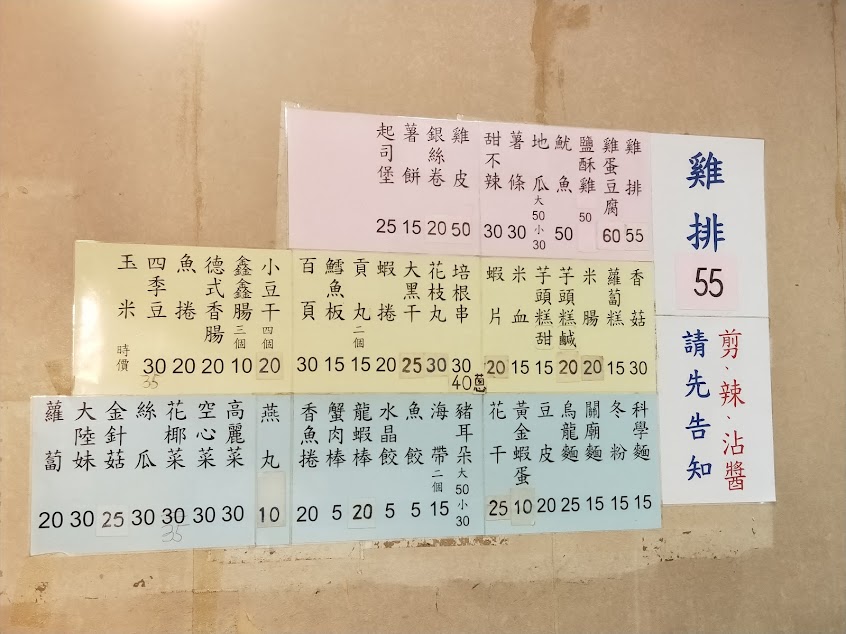 雞排
55
剪、辣、沾醬
請先告知
雞排 55
雞蛋豆腐 60
鹽酥雞 50
魷魚 50
地瓜 大50 小30
薯條 30
甜不辣 30
雞皮 50
銀絲卷 20
薯餅 15
起司堡 25
香菇 30
蘿蔔糕 15
米腸 20
芋頭糕鹹 20
芋頭糕甜 15
米血 15
蝦片 20
培根串 30 40蔥
花枝丸 30
大黑干 25
蝦捲 20
貢丸 二個 15
鱈魚板 15
百頁 30
小豆干 四個 20
鑫鑫腸 三個 10
德式香腸 20
魚捲 20
四季豆 30 35
玉米 時價
科學麵 15
冬粉 15
關廟麵 15
烏龍麵 25
豆皮 20
黃金蝦蛋 10
花干 25
豬耳朵 大50 小30
海帶 二個 15
魚餃 5
水晶餃 5
龍蝦棒 20
蟹肉棒 5
香魚捲 20
燕丸 10
高麗菜 30
空心菜 30
花椰菜 30 35
絲瓜 30
金針菇 25
大陸妹 30
蘿蔔 20